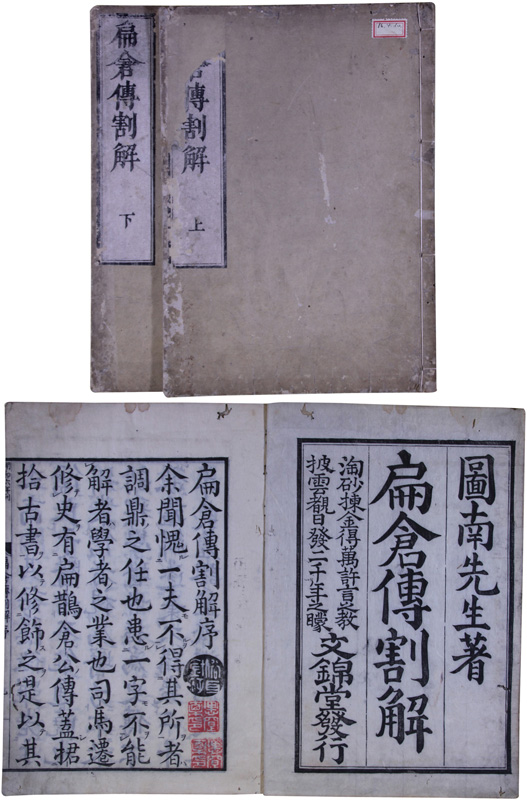 扁倉傳割解
下
倉傳割解
上
圖南先生著
扁倉傳割解
淘砂揀金得萬許言之教
披雲覩日發二千年之矇
文錦堂發行
扁倉傳割解序
余聞愧一夫不得其所者
調鼎之任也患一字不能
解者學者之業也司馬遷
修史有扁鵲倉公傳蓋捃
拾古書以修飾之是以其